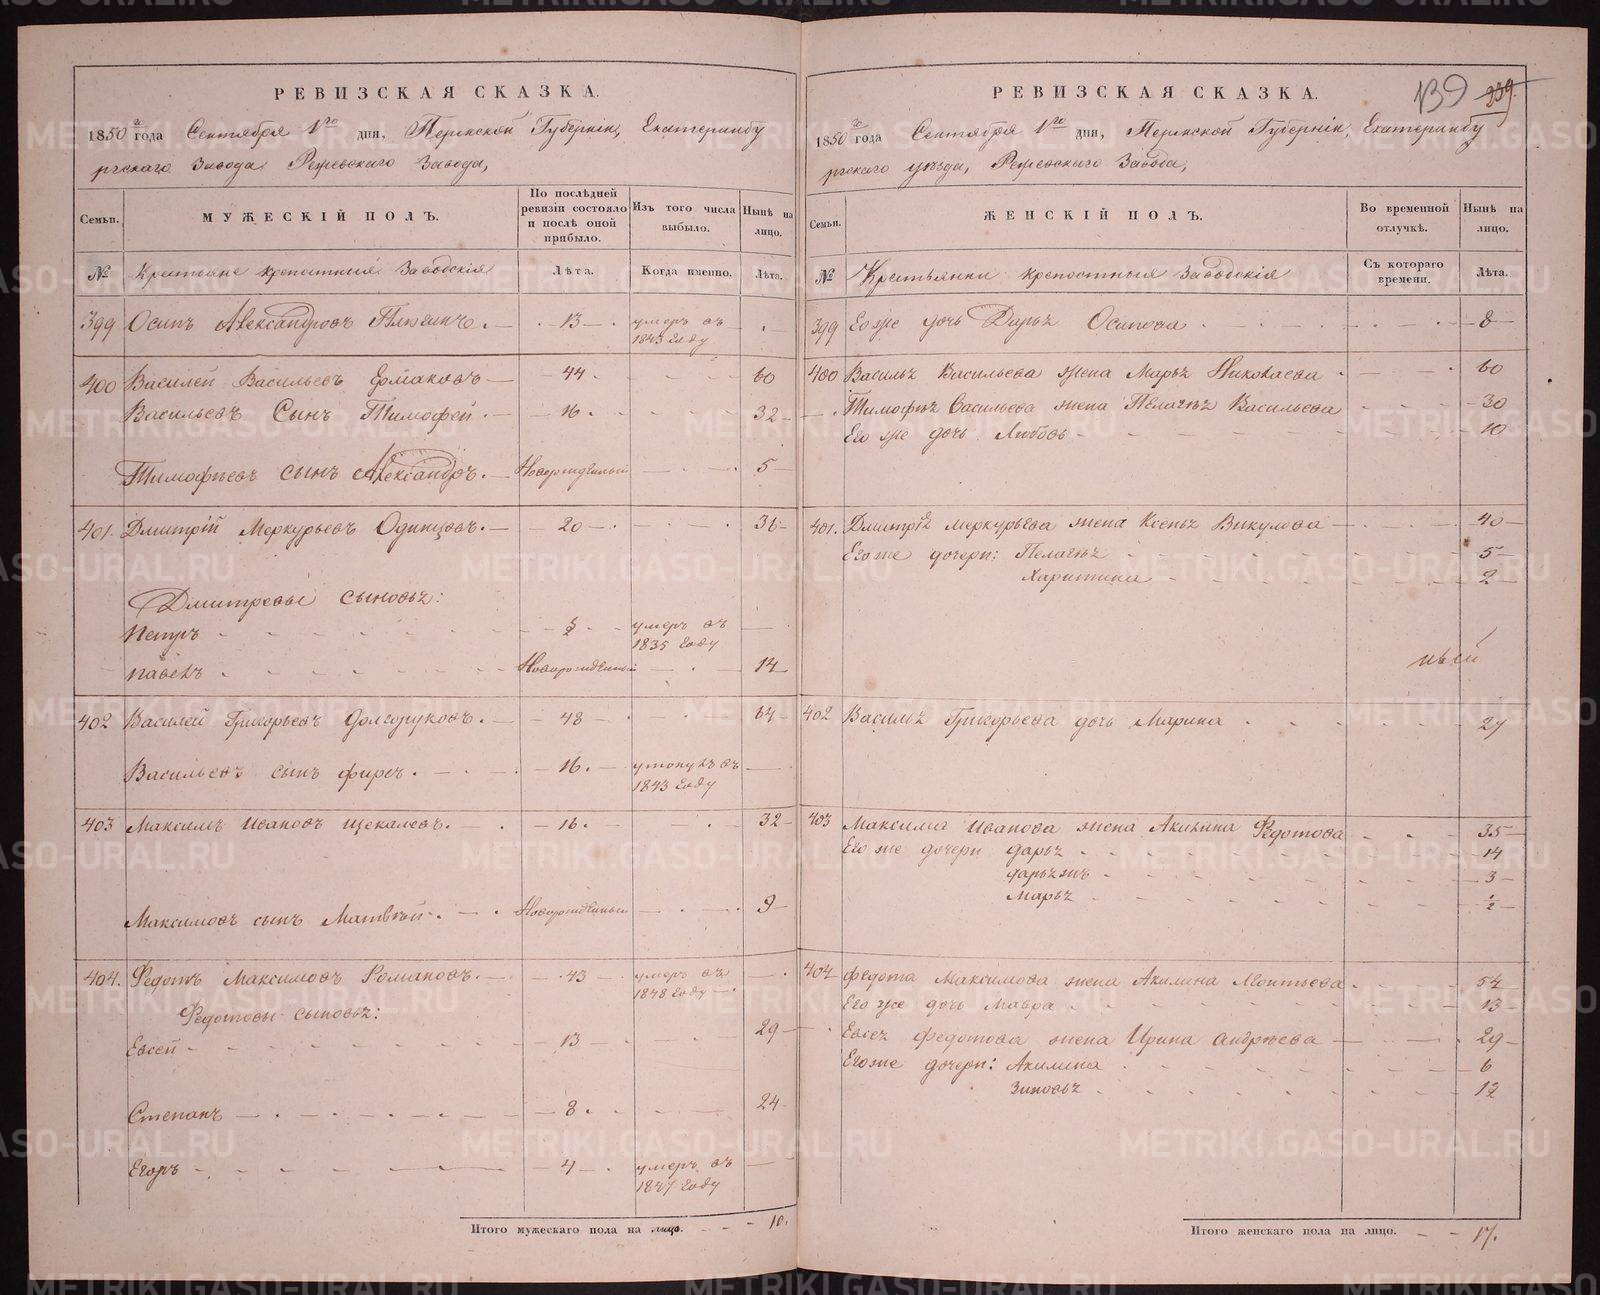 РЕВИЗСКАЯ СКАЗКА.
1850го года Сентября 1го дня, Пермской Губерніи, Екатеринбу
ргскаго Завода Режевскаго Завода,
Семьи.
МУЖЕСКІЙ ПОЛЪ.
По послѣдней ревизіи состояло и послѣ оной прибыло.
Изъ того числа выбыло.
Нынѣ на лицо.
№ Крестьяне крепостныя Заводскія
Лѣта.
Когда именно.
Лѣта.
399 Осипъ Александровъ 13 умеръ въ 1843 году
400 Василей Васильевъ Ермаковъ 44 60
Васильевъ Сынъ Тимофей 16 32
Тимофѣевъ сынъ Александръ Новорожденный 5
401 Дмитрій Меркурьевъ Одинцовъ 20 36
Дмитревы сыновьѣ:
Петръ умеръ въ 1835 году
Павелъ Новорожденный 14
402 Василей Григорьевъ Долгоруковъ 48 64
Васильевъ сынъ Фирсъ 16 утонулъ въ 1843 году
403 Максимъ Ивановъ Щекалевъ 16 32
Максимовъ сынъ Матвѣй Новорожденный 9
404 Федотъ Максимовъ Романовъ 43 умеръ въ 1848 году
Федотовы сыновьѣ:
Евсей 13 29
Степанъ 8 24
Егоръ 4 умеръ въ 1847 году
Итого мужескаго пола на лицо. 10.
139 239
РЕВИЗСКАЯ СКАЗКА.
1850го года Сентября 1го дня, Пермской Губерніи, Екатеринбу
ргскаго уѣзда, Режевскаго Завода,
Семьи.
ЖЕНСКІЙ ПОЛЪ.
Во временной отлучкѣ.
Нынѣ на лицо.
№ Крестьянки крепостныя заводскія
Съ котораго времени.
Лѣта.
399 Его же дочь Дарьѣ Осипова 8
400 Васильѣ Васильева жена Марьѣ Николаева 60
Тимофѣѣ Васильева жена Пелагѣѣ Васильева 30
Его же дочь Любовь 10
401. Дмитріѣ Меркурьева жена Ксеньѣ Викулова 40
Его же дочери: Пелагѣѣ 5
Харитина 2
402 Васильѣ Григорьева дочь Марина 27
403 Максима Иванова жена Акилина Федотова 35
Его же дочери Дарьѣ 14
3
Марьѣ ½
404 Федота Максимова жена Акилина Леонтьева 54
Его же дочь Мавра 13
Евсеѣ Федотова жена Ирина Андрѣева 29
Его же дочери: Акилина 6
Зиновьѣ
Итого женскаго пола на лицо. 17.
METRIKI.GASO-URAL.RU